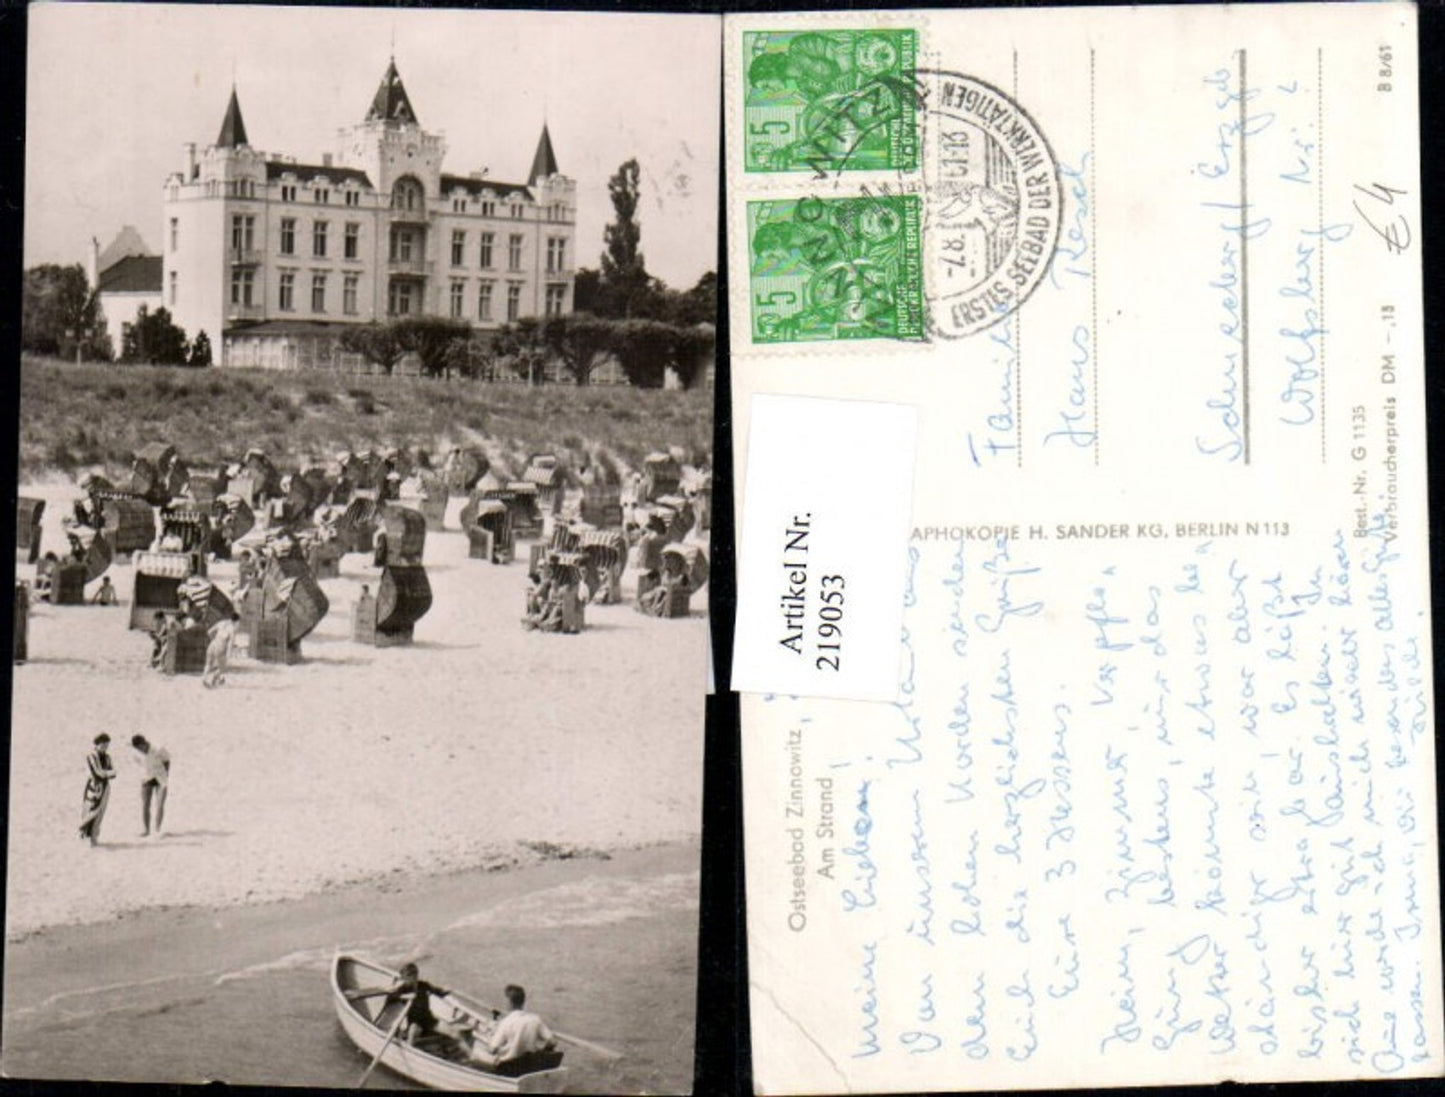 5
DEUTSCHE
DEMOKRATISCHE REPUBLIK
5
DEUTSCHE
DEMOKRATISCHE REPUBLIK
ZINNOWITZ
-7.8.61-18
ERSTES SEEBAD DER WERKTÄTIGEN
Familie
Hans Resch
Schneeberg / Erzgeb
Wolfsberg Nr.
B 8/61
€ 4
Best.-Nr. G 1135
Verbraucherpreis DM -,18
APHOKOPIE H. SANDER KG, BERLIN N 113
Artikel Nr.
219053
Ostseebad Zinnowitz,
Am Strand
Meine Lieben!
Von unserem Urlaub aus
dem hohen Norden senden
Euch die herzlichsten Grüße
Eure 3
Heim, Zimmer, Verpfle-
gung bestens, nur das
Wetter könnte etwas be-
ständiger sein, war aber
bisher Es läßt
sich hier gut aushalten. In
werde ich mich wieder hören
lassen.